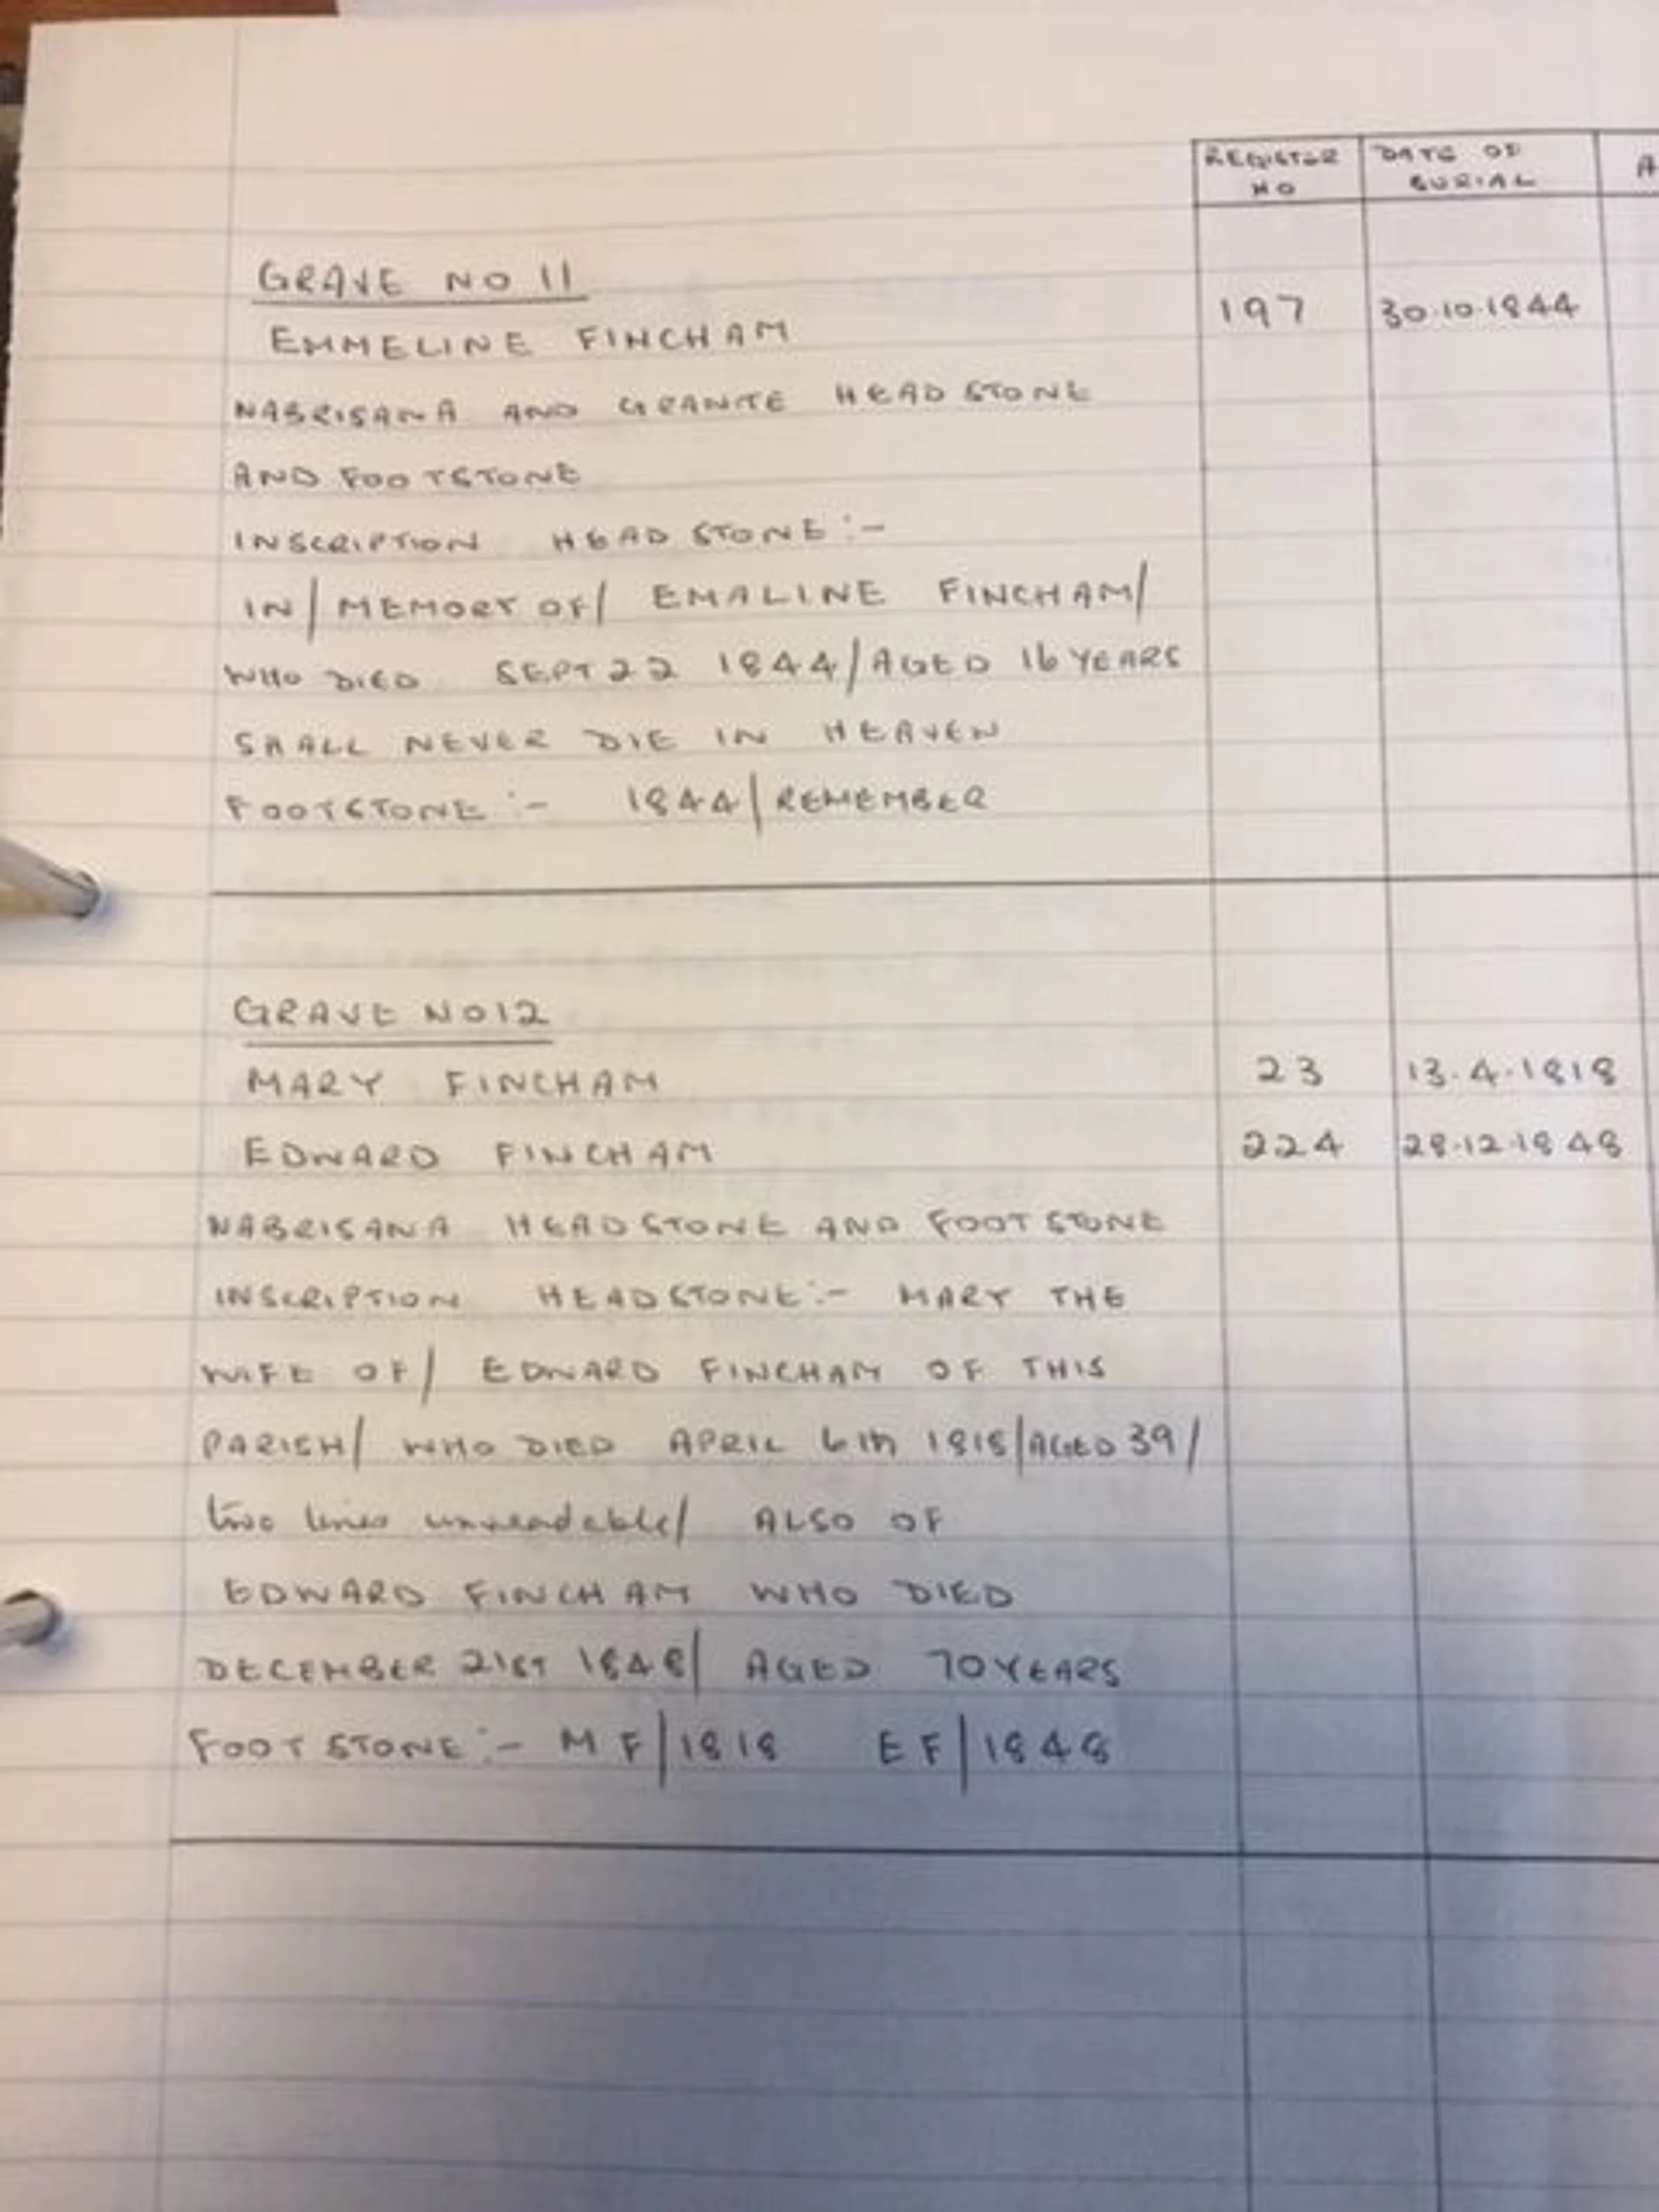 REGISTER NO DATE OF BURIAL A
GRAVE NO 11
EMMELINE FINCHAM 197 30.10.1844
NABRISANA AND GRANITE HEADSTONE
AND FOOTSTONE
INSCRIPTION HEADSTONE:-
IN/ MEMORY OF/ EMALINE FINCHAM/
WHO DIED SEPT 22 1844/AGED 16 YEARS
SHALL NEVER DIE IN HEAVEN
FOOTSTONE:- 1844/REMEMBER
GRAVE NO 12
MARY FINCHAM 23 13.4.1818
EDWARD FINCHAM 224 28.12.1848
NABRISANA HEADSTONE AND FOOTSTONE
INSCRIPTION HEADSTONE:- MARY THE
WIFE OF/ EDWARD FINCHAM OF THIS
PARISH/ WHO DIED APRIL 6th 1818/AGED 39/
two lines unreadable/ ALSO OF
EDWARD FINCHAM WHO DIED
DECEMBER 21ST 1848/ AGED 70 YEARS
FOOTSTONE:- M F/1818 E F/1848